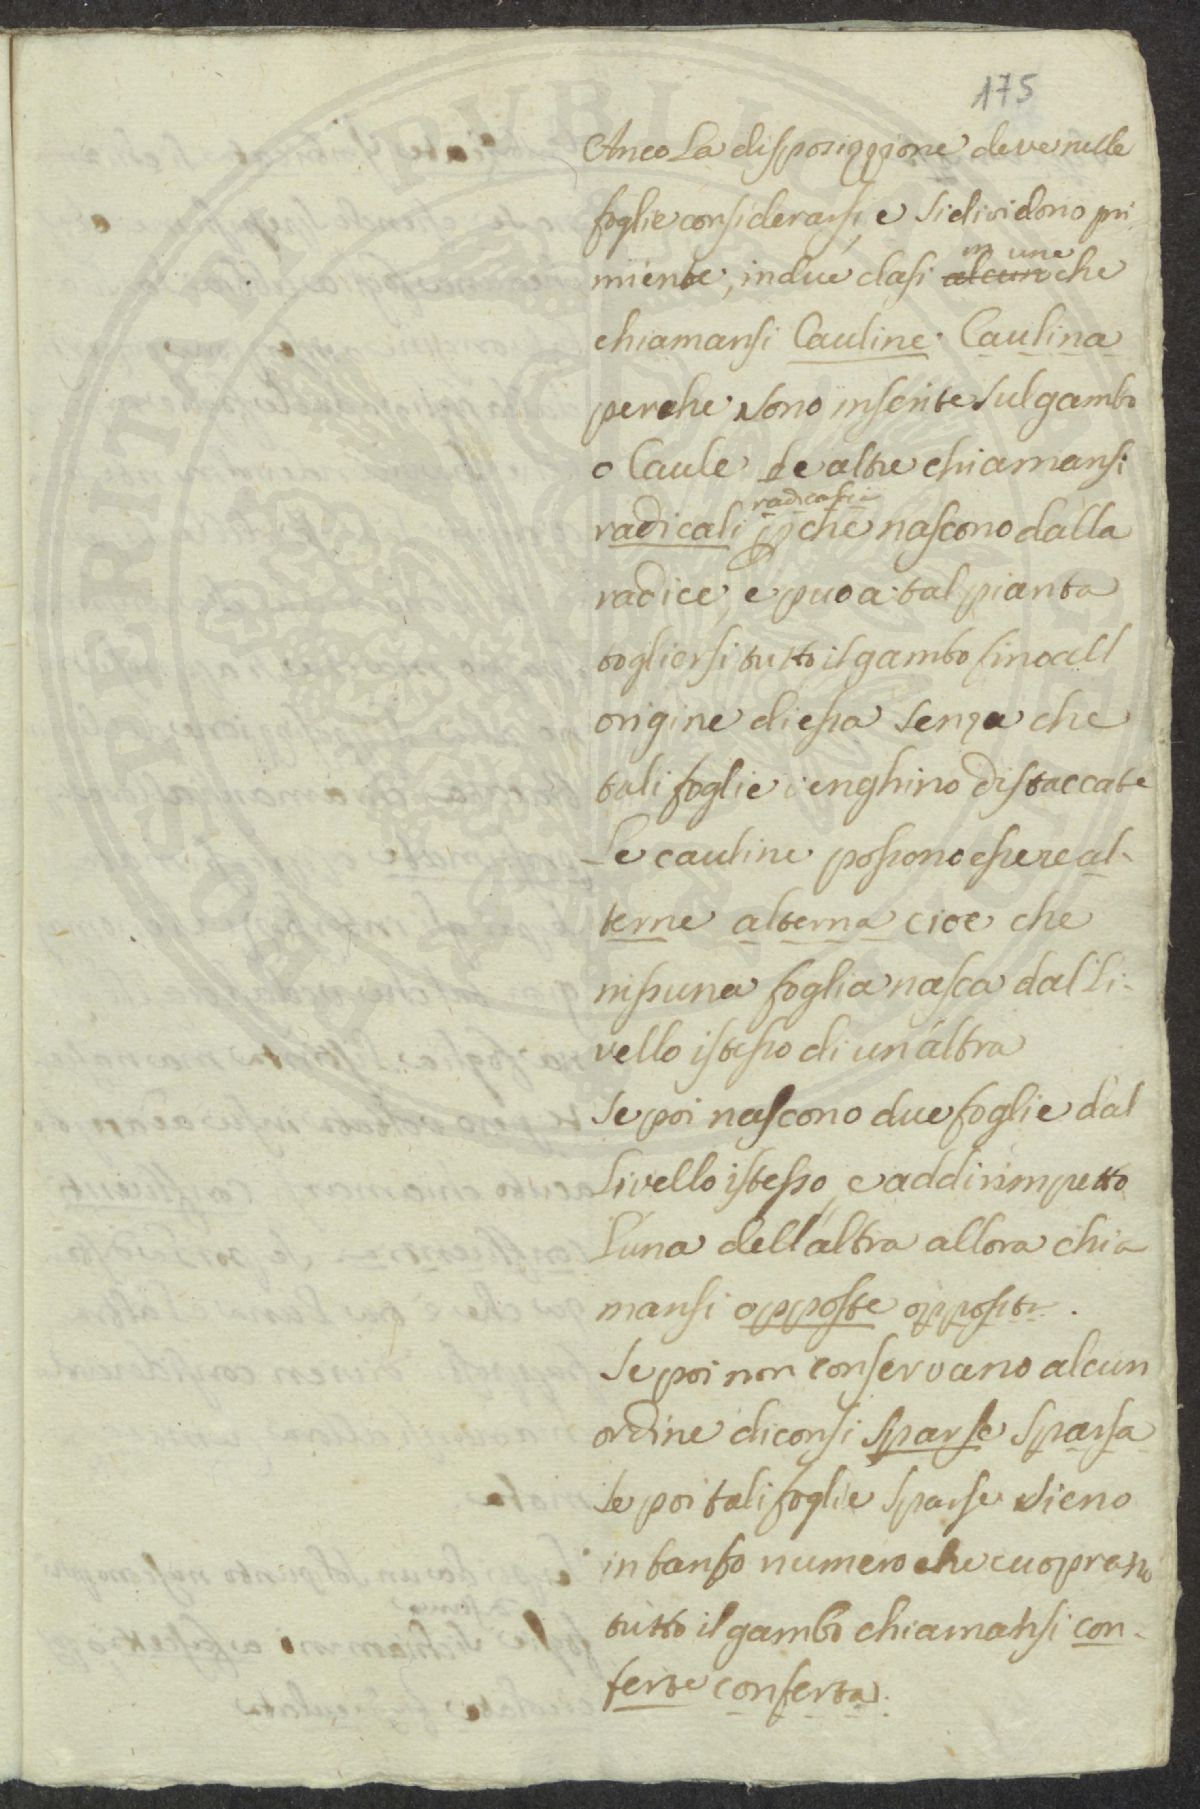 175
Anco La disposizzione deve nelle
foglie considerarsi, e si dividono pri-
miente, in due clasi alcun in une che
chiamansi Cauline. Caulina
perche sono inserite sul gambo
o Caule de altre chiamansi
radicali radicalia p che nascono dalla
radice, e puo a tal pianta
togliersi tutto il gambo sino all
origine di essa senza che
tali foglie venghino distaccate
Le cauline possono essere al-
terne alterna cioe che
nissuna foglia nasca dal li-
vello istesso di un'altra
Se poi nascono due foglie dal
Livello istesso, e addirimpetto
l'una dell'altra allora chia
mansi opposte opposita.
Se poi non conservano alcun
ordine diconsi Sparse Sparsa
Se poi tali foglie sparse sieno
in tanto numero che cuoprano
tutto il gambo chiamansi con-
ferte conferta.